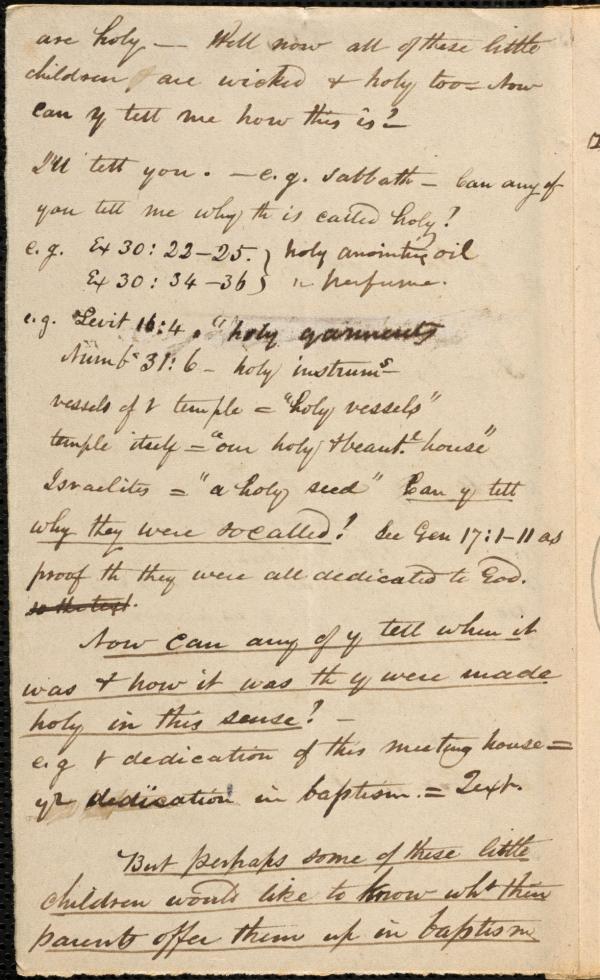 are holy — Well now all of these little
children are wicked & holy too = Now
can y tell me how this is? —
I'll tell you. — e.g. Sabbath — Can any of
you tell me why th is called holy?
e.g. Ex 30: 22–25. } holy anointing oil
Ex 30: 34–36 } " perfume.
e.g. Levit 16:4. "holy garments
Numbs 31: 6 — holy instrums —
vessels of & temple = "holy vessels"
temple itself = "our holy & beaut.l house"
Israelites = "a holy seed" Can y tell
why they were so called? See Gen 17:1–11 as
proof th they were all dedicated to God.
so the text.
Now can any of y tell when it
was & how it was th y were made
holy in this sense? —
e.g & dedication of this meeting house =
yr dedication in baptism. = Text.
But perhaps some of these little
children would like to know wht their
parents offer them up in baptism